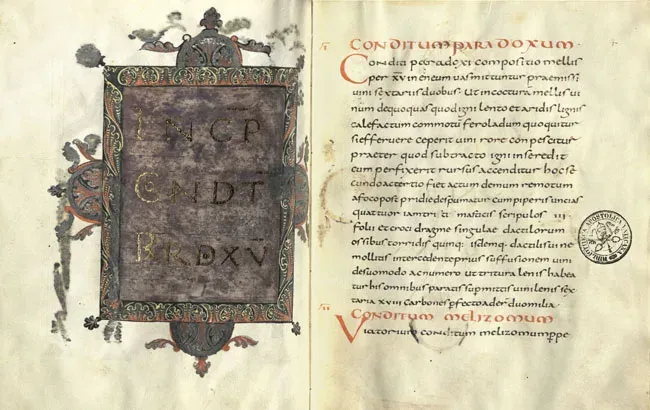 INCP
CNDT
PRDXV
CONDITUM PARADOXUM
Conditi paradoxi compositio mellis
per xv in eneum uas mittuntur praemissi
uini sextariis duobus. Ut in coctura mellis ui
num dequoquas quod igni lento et aridis lignis
calefactum commotu ferola dum quoquitur
si efferuere ceperit uini rore conpescitur
praeter quod subtracto igni in se redit
cum perfixerit rursus accenditur hoc se
cundo ac tertio fiet ac tum demum remotum
a foco post pridie despumatur cum piperis uncias
quattuor iam triti masticis scripulos iii
folii et croci dragme singulae dactilorum
ossibus torridis quinq: isdemq: dactilis uine
mollitis intercedente prius suffusionem uini
de suo modo ac numero ut tritura lenis habea
tur his omnibus paratis supmittis uini lenis sex
taria xviii carbones pfecto aderduo milia
CONDITUM MELIZOMUM
Viatorium conditum melizomum ppe
BIBLIOTHECA APOSTOLICA VATICANA